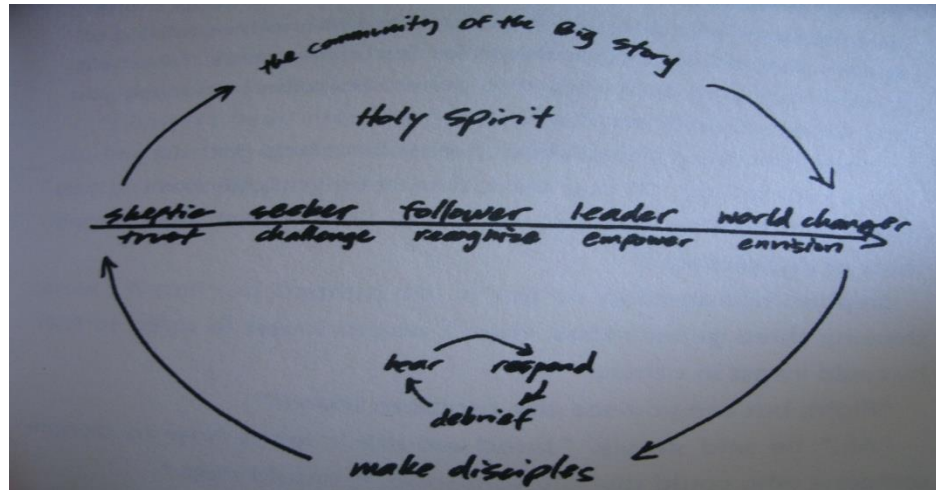 the community of the Big Story
Holy Spirit
skeptic seeker follower leader world changer
trust challenge recognize empower envision
hear respond
debrief
make disciples